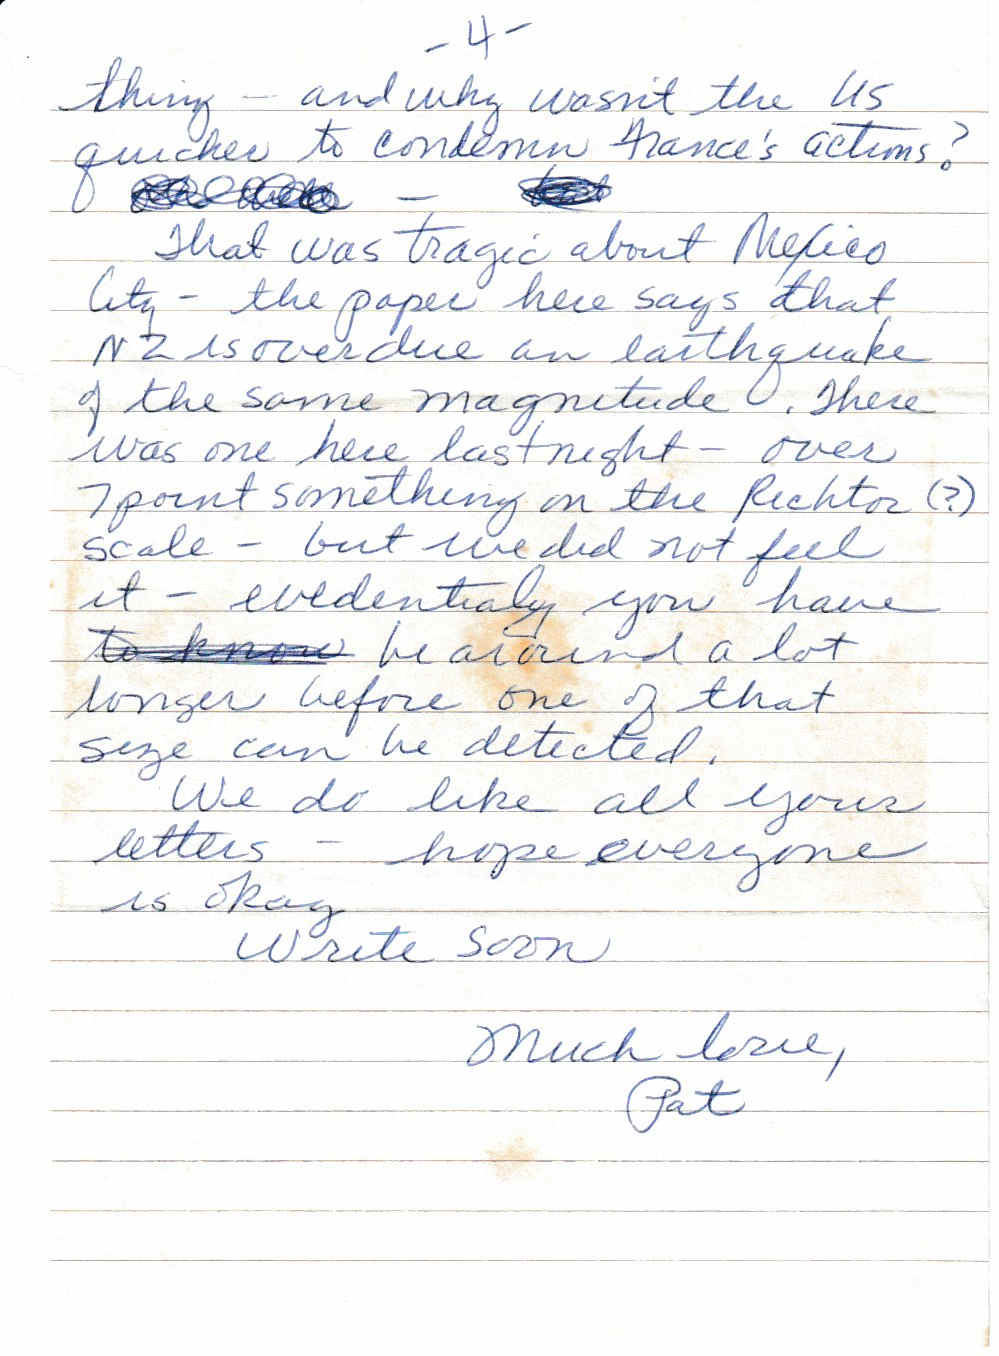 -4-
thing - and why wasn't the US
quicker to condemn France's actions?
-
That was tragic about Mexico
City - the paper here says that
NZ is overdue an earthquake
of the same magnitude. There
was one here last night - over
7 point something on the Richtor (?)
scale - but we did not feel
it - evedentialy you have
to know be around a lot
longer before one of that
size can be detected.
We do like all your
letters - hope everyone
is okay
Write soon
Much love,
Pat